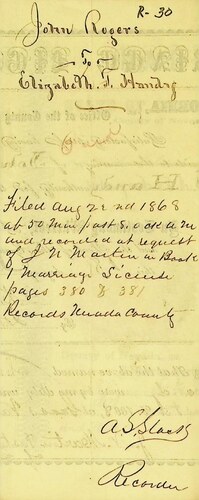 R-30
John Rogers
To
Elizabeth. T. Handy
Filed Aug 22nd 1868
at 50 Min past 8. o'ck A M
and recorded at request
of J N Martin in Book
1 Marriage License
pages 380 & 381
Records Nevada County
Recorder